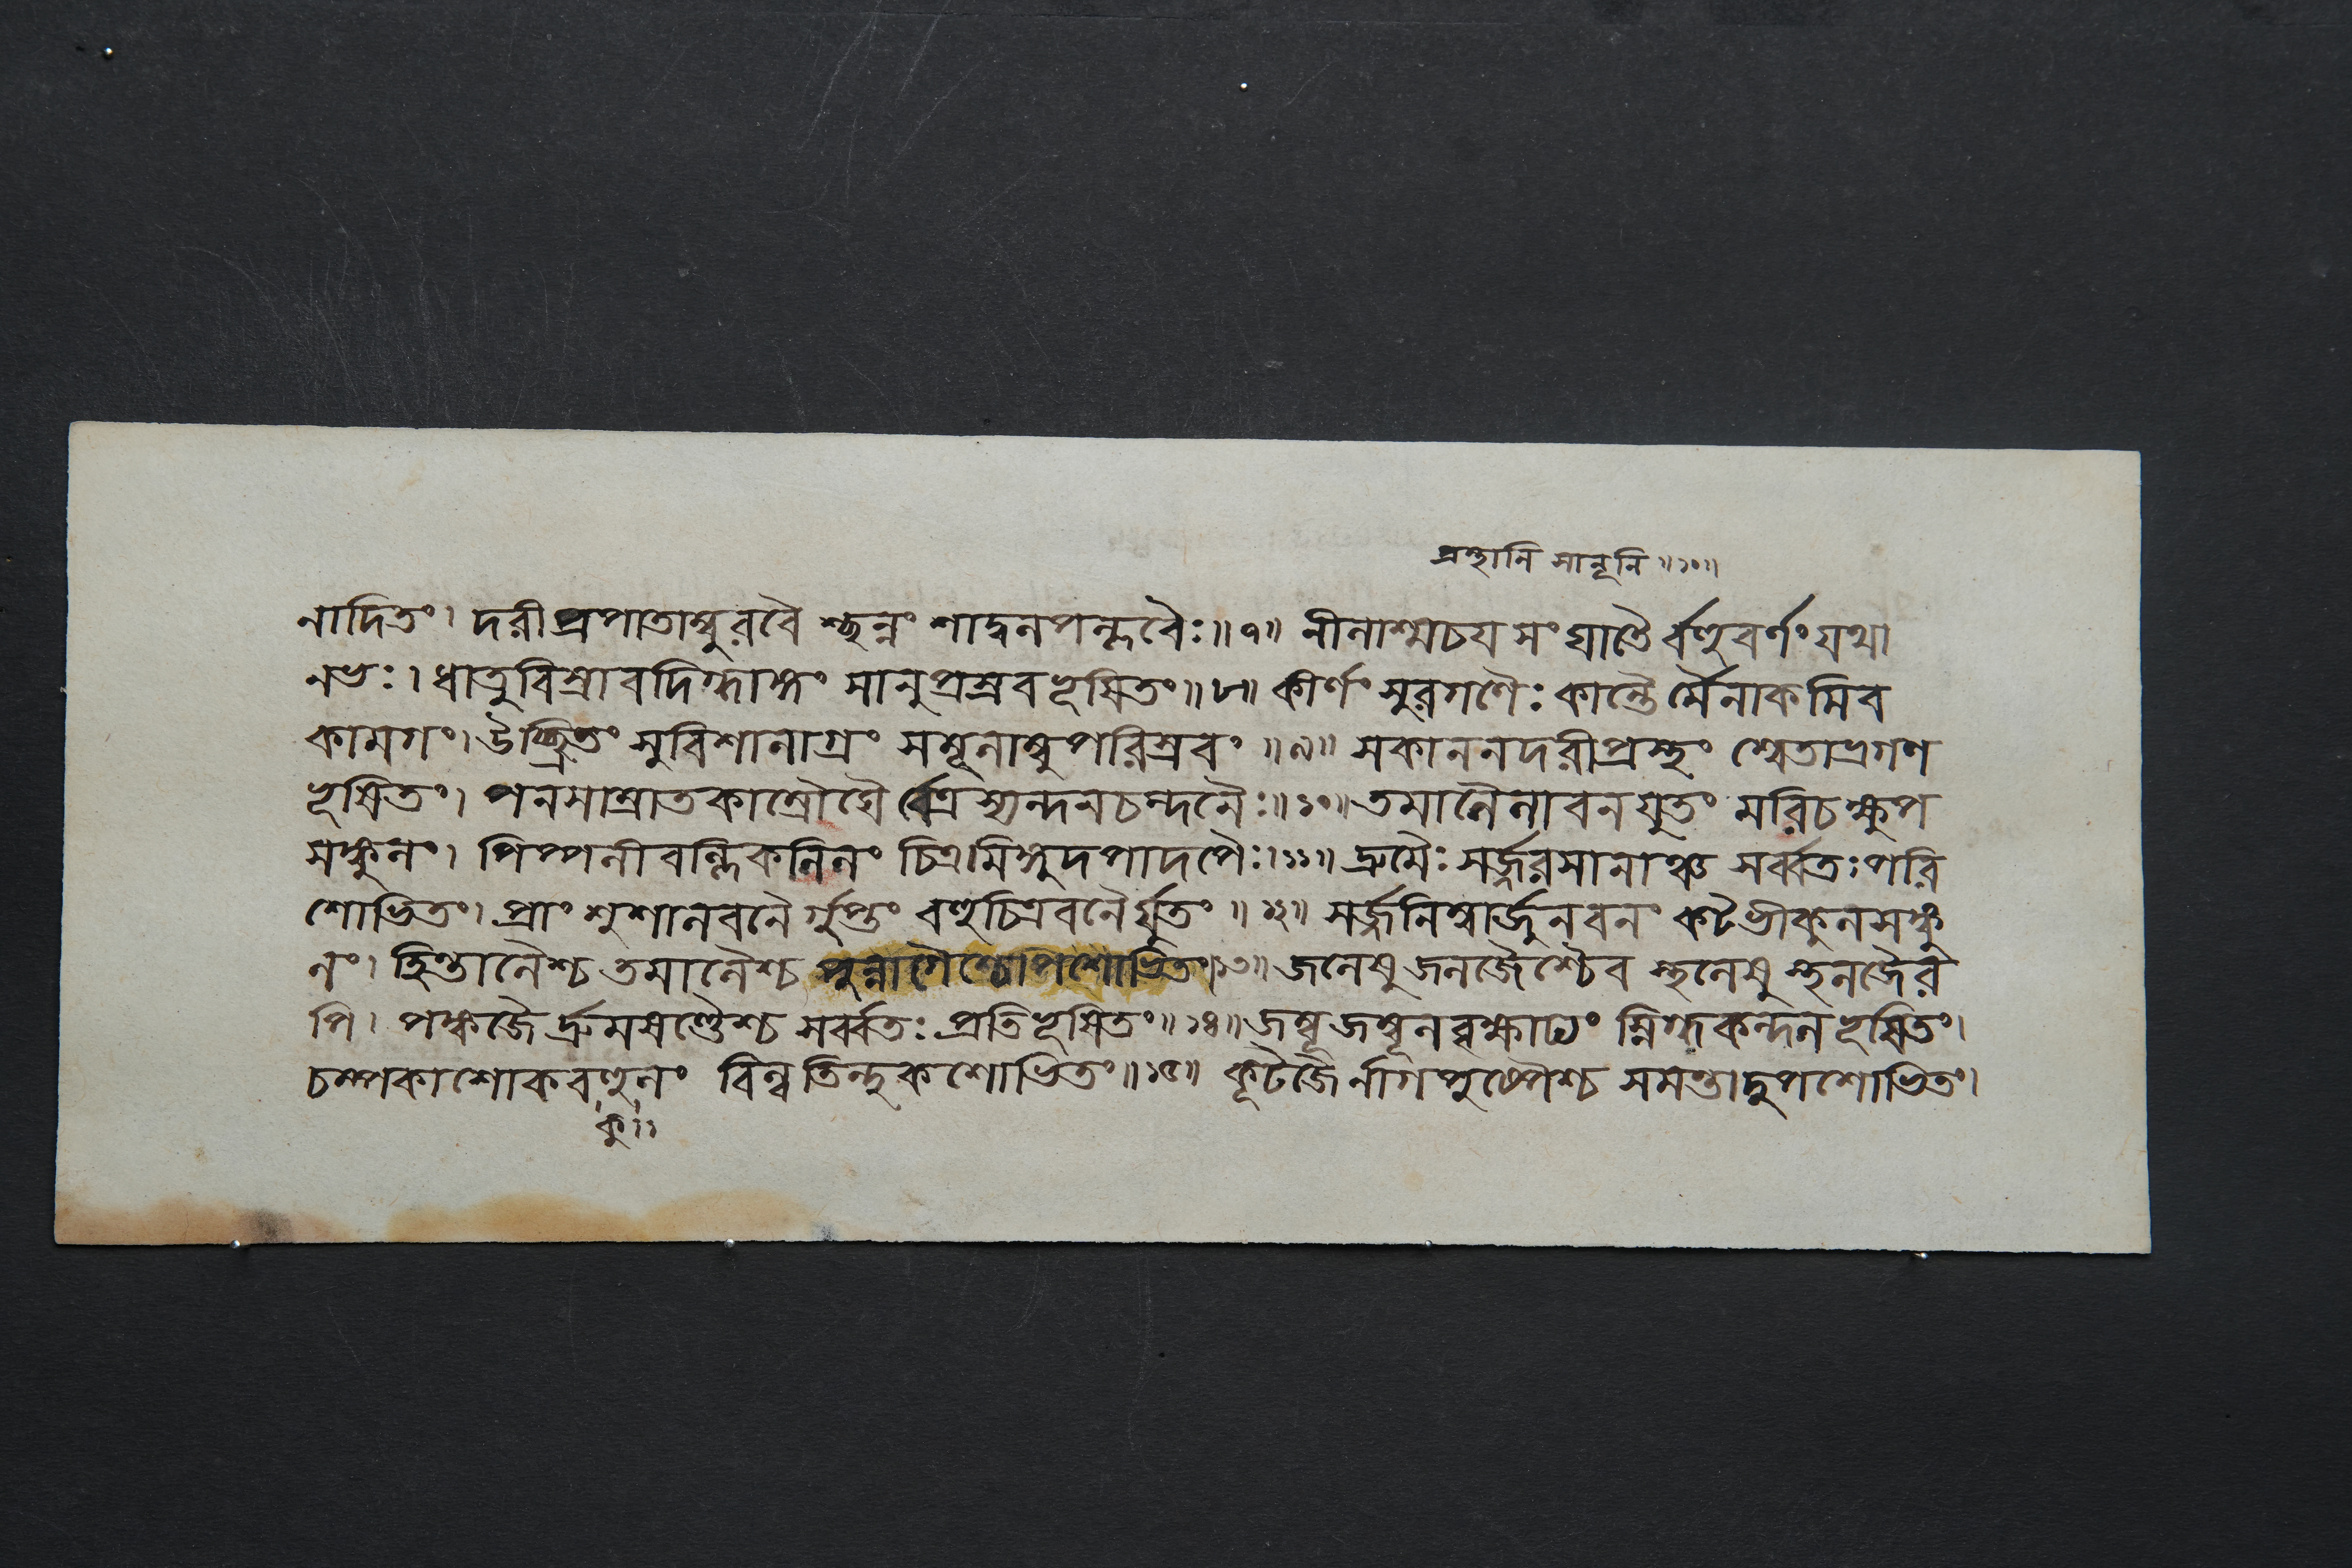 প্রস্থানি সানূনি ॥১০॥
নাদিতং। দরীপ্রপাতাম্বুরবৈ শ্ছন্নং শাদ্বলপল্লবৈঃ॥৭॥ নীলাশ্মচয সংঘাতৈ র্বহুবর্ণং যথা
নভঃ। ধাতুবিস্রাবদিগ্ধাঙ্গং সানুপ্রস্রবভূষিতং॥৮॥ কীর্ণং সুরগণৈঃ কান্তৈ র্মৈনাকমিব
কামগং। উচ্ছ্রিতং সুবিশালাগ্রং সমূলাম্বুপরিস্রবং ॥৯॥ সকাননদরীপ্রস্থং শ্বেতাভ্রগণ
ভূষিতং। পনসাম্রাতকাম্রৌঘৈ র্বেত্র স্যন্দনচন্দনৈঃ॥১০॥ তমালৈলাবনযুতং মরিচক্ষুপ
সঙ্কুলং। পিপ্পলীবল্লিকলিলং চিত্রমিঙ্গুদপাদপৈঃ।১১॥ দ্রুমৈঃ সর্জ্জরসালাঞ্চ সর্ব্বতঃ পরি
শোভিতং। প্রাংশুশালবনৈ র্গুপ্তং বহুচিত্রবনৈ র্যুতং ॥১২॥ সর্জ্জনিম্বার্জুনবনং কটভীকুলসঙ্কু
লং। হিন্তালৈশ্চ তমালৈশ্চ পুন্নাগৈশ্চোপশোভিতং।১৩॥ জলেষু জলজৈশ্চৈব স্থলেষু স্থলজৈর
পি। পঙ্কজৈ র্দ্রুমষণ্ডৈশ্চ সর্ব্বতঃ প্রতিভূষিতং॥১৪॥ জম্বূজম্বূলবৃক্ষাঢ্যং স্নিগ্ধকন্দলভূষিতং।
চম্পকাশোকবহুলং বিল্বতিন্দুকশোভিতং॥১৫॥ কূটজৈ র্নাগপুষ্পৈশ্চ সমন্তাদুপশোভিতং।
কু॥